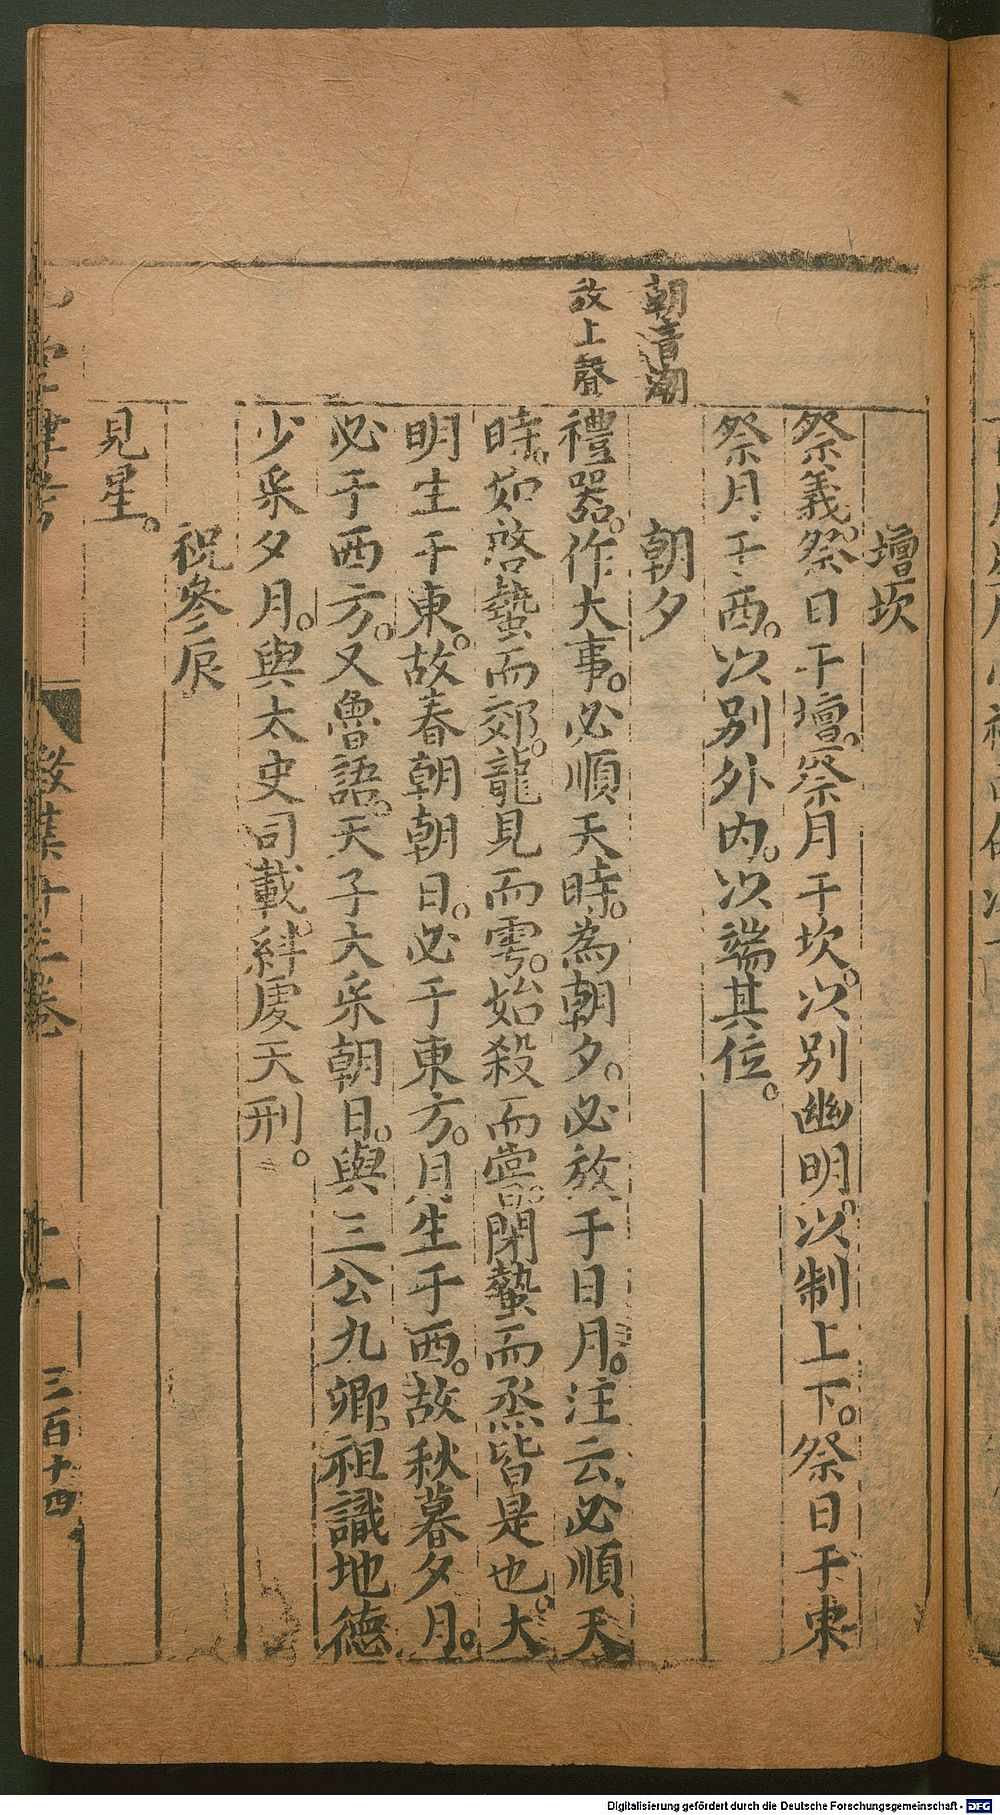 壇坎
祭義。祭日于壇。祭月于坎。以別幽明。以制上下。祭日于東
祭月于西。以別外内。以端其位。
朝音潮
朝夕
放上聲
禮器。作大事。必順天時。為朝夕。必放于日月。注云。必順天
時。如啓蟄而郊。龍見而雩。始殺而嘗。閉蟄而烝。皆是也。大
明生于東。故春朝朝日。必于東方。月生于西。故秋暮夕月。
必于西方。又魯語。天子大采朝日。與三公九卿。祖識地德
少采夕月。與太史司載。糾虔天刑。
祝參辰
見星。
數集廿三卷
三百十四
Digitalisierung gefördert durch die Deutsche Forschungsgemeinschaft - DFG